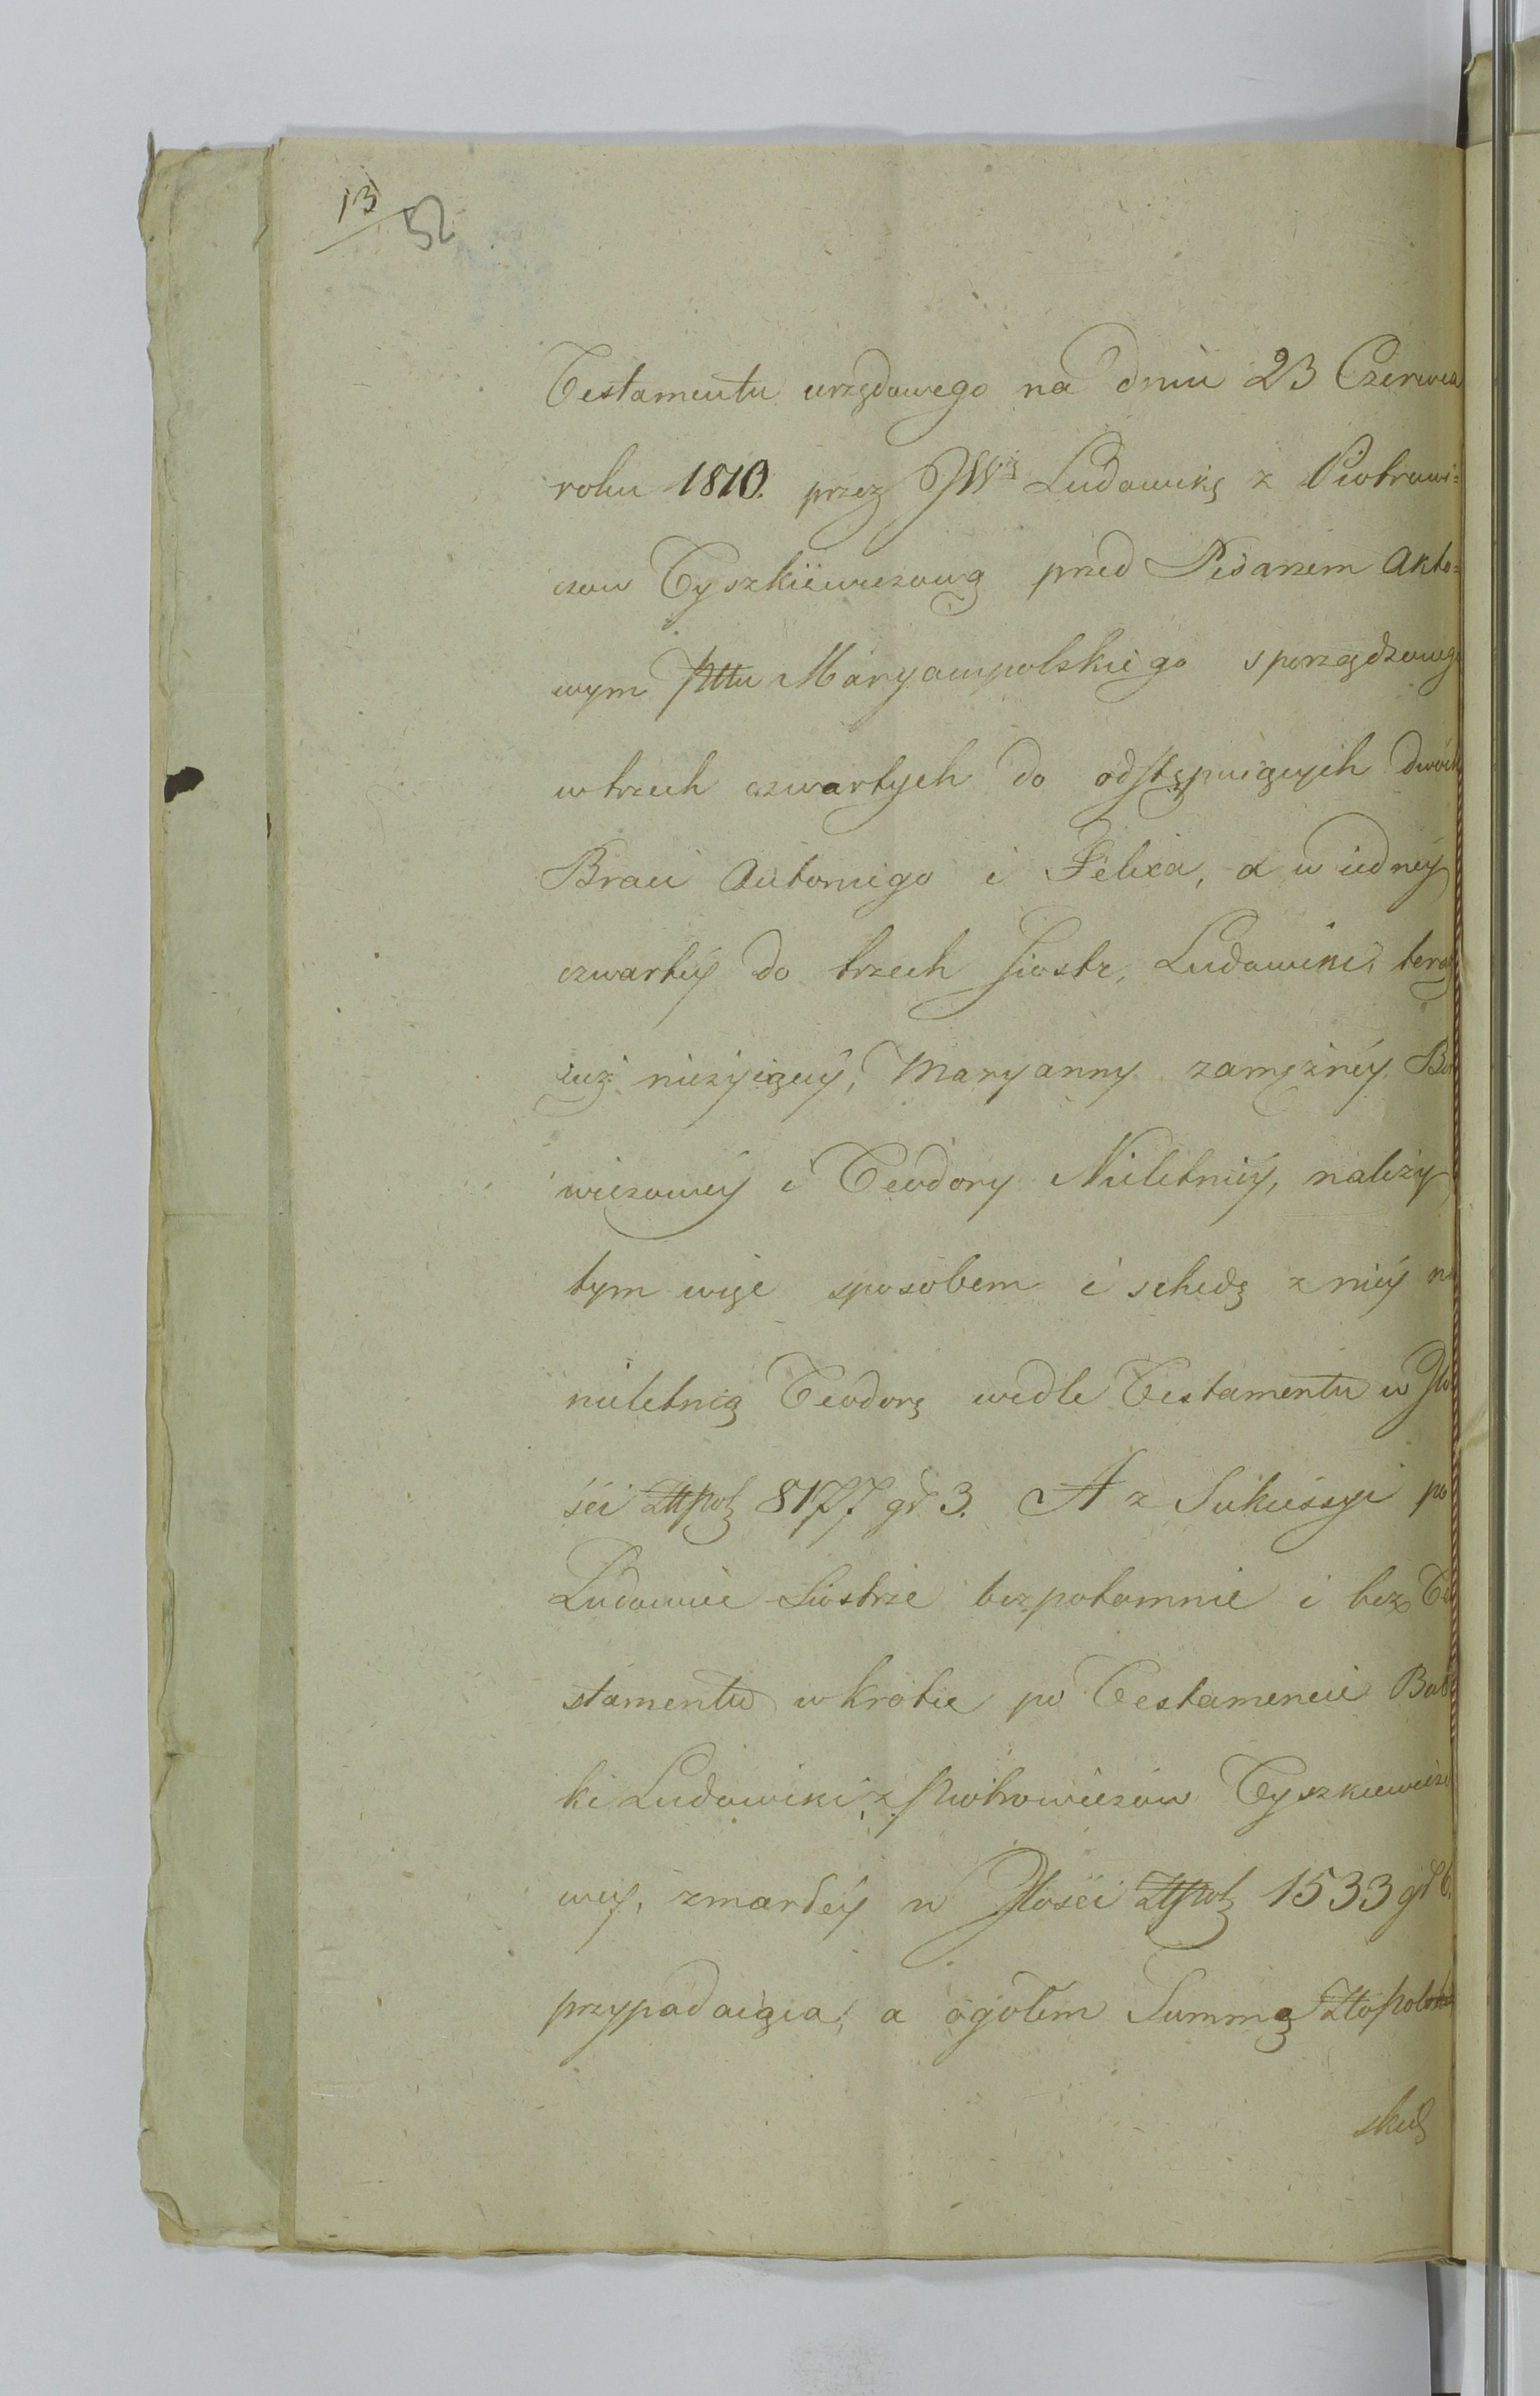 13
52
Testamentu urzędowego na dniu 23 Czerwca
roku 1810. przez JWą Ludowikę z Piotrowi=
czow Tyszkiewiczową przed Pisarzem Akto=
wym Pttu Maryampolskiego sporządzonego
w trzech czwartych do odstępuiących dwóch
Braci Antoniego i Felixa, a w iedney
czwartey do trzech Siostr, Ludowiki, teraz
iuż nieżyiącey, Maryanny zamężney
wiczowey i Teodory Nieletniey, należy
tym więc sposobem i schedę z niey na
nieletnią Teodorę wedle Testamentu w Jlo
ści Złłpol 8177 gr 3. A z Sukcessyi po
Ludowice Siostrze bezpotomnie i bez Te
stamentu wkrotce po Testamencie Bab
ki Ludowiki z Piotrowiczow Tyszkiewiczo
wey, zmarłey w Jlości Złłpol 1533 gr 6.
przypadaiącą, a ogołem Summę Złopol
skich